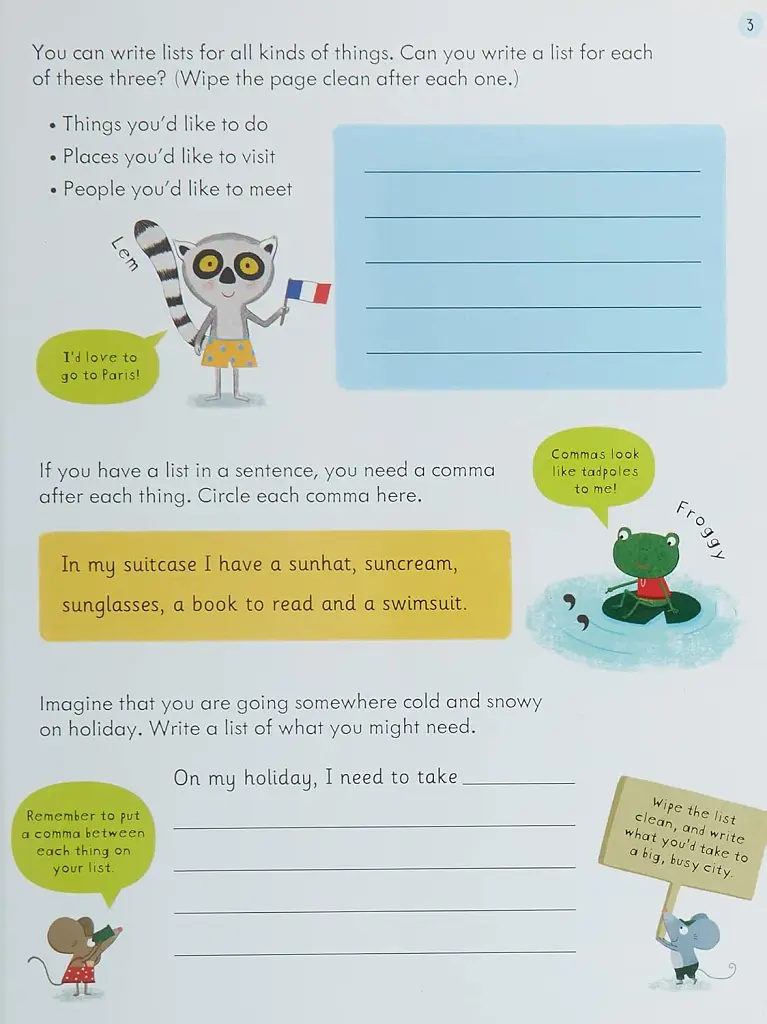 3
You can write lists for all kinds of things. Can you write a list for each
of these three? (Wipe the page clean after each one.)
• Things you'd like to do
• Places you'd like to visit
• People you'd like to meet
Lem
I'd love to
go to Paris!
If you have a list in a sentence, you need a comma
after each thing. Circle each comma here.
Commas look
like tadpoles
to me!
Froggy
In my suitcase I have a sunhat, suncream,
sunglasses, a book to read and a swimsuit.
Imagine that you are going somewhere cold and snowy
on holiday. Write a list of what you might need.
On my holiday, I need to take
Remember to put
a comma between
each thing on
your list.
Wipe the list
clean, and write
what you'd take to
a big, busy city.